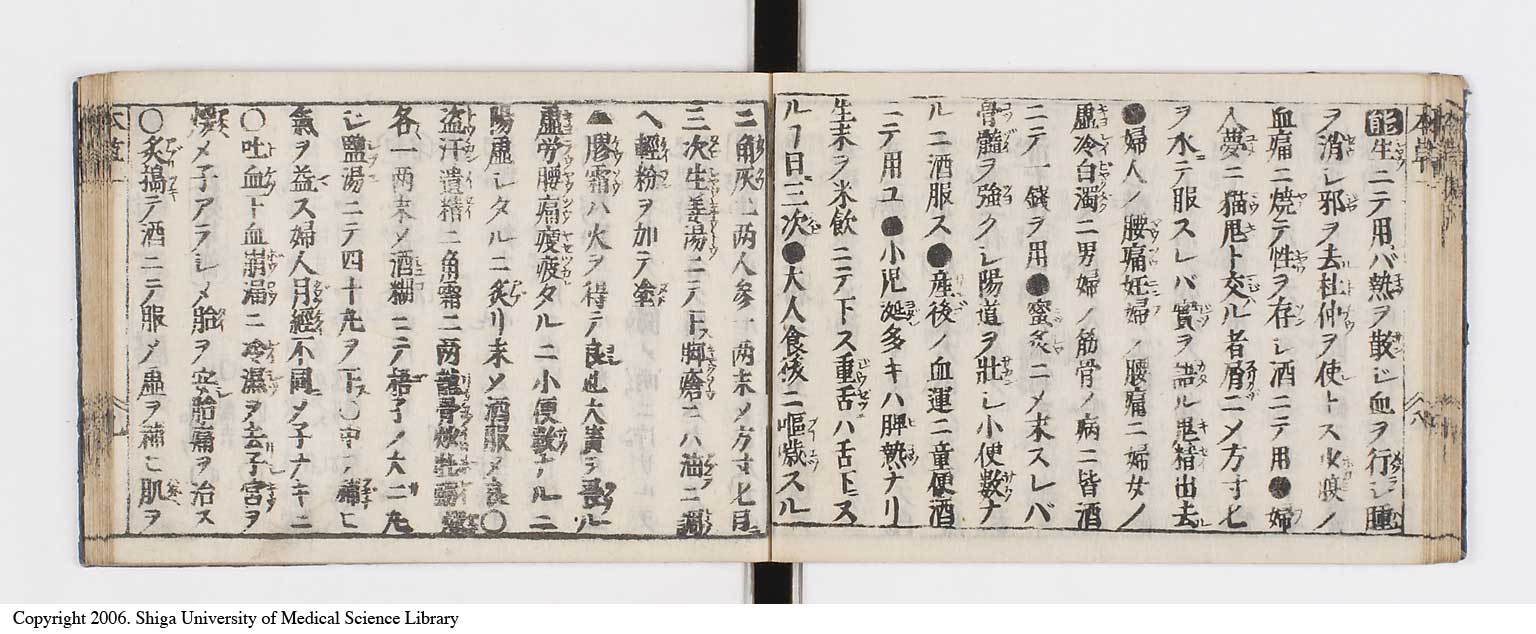 能生ニテ用バ熱ヲ散シ血ヲ行シ腫
ヲ消シ邪ヲ去杜仲ヲ使トス女腹ノ
血痛ニ焼テ性ヲ存シ酒ニテ用●婦
人夢ニ猫鬼ト交ル者屑ニメ方寸匕
ヲ水テ服スレバ實ヲ語ル鬼精出去
●婦人ノ腰痛妊婦ノ腰痛ニ婦女ノ
虚冷白濁ニ男婦ノ筋骨ノ病ニ皆酒
ニテ一錢ヲ用●蜜炙ニメ末スレバ
骨髓ヲ強クシ陽道ヲ壯シ小便數ナ
ルニ酒服ス●産後ノ血運ニ童便酒
ニテ用ユ●小児涎多キハ脾熱ナリ
生末ヲ米飲ニテ下ス重舌ハ舌下ニス
ルヿ日三次●大人食後ニ嘔歳スル
ニ角灰二两人参一两末メ方寸匕日
三次生姜湯ニテ下ス胸瘡ニハ油ニ調
ヘ輕粉ヲ加テ塗
▲膠霜ハ火ヲ得テ良也大黄ヲ畏ル
虚労腰痛瘦疲タルニ小便數ナルニ
陽虚シタルニ炙リ末メ酒服メ良○
盗汗遺精ニ角霜二两龍骨炒牡蠣煆
各一两末メ酒糊ニテ梧子ノ大ニ丸
シ鹽湯ニテ四十丸ヲ下ス○中ヲ補ヒ
氣ヲ益ス婦人月經不同メ子ナキニ
○吐血下血崩漏ニ冷濕ヲ去子宮ヲ
煖メ子アラシメ胎ヲ安胎痛ヲ治ス
○炙搗テ酒ニテ服メ虚ヲ補ヒ肌ヲ
Copyright 2006. Shiga University of Medical Science Library